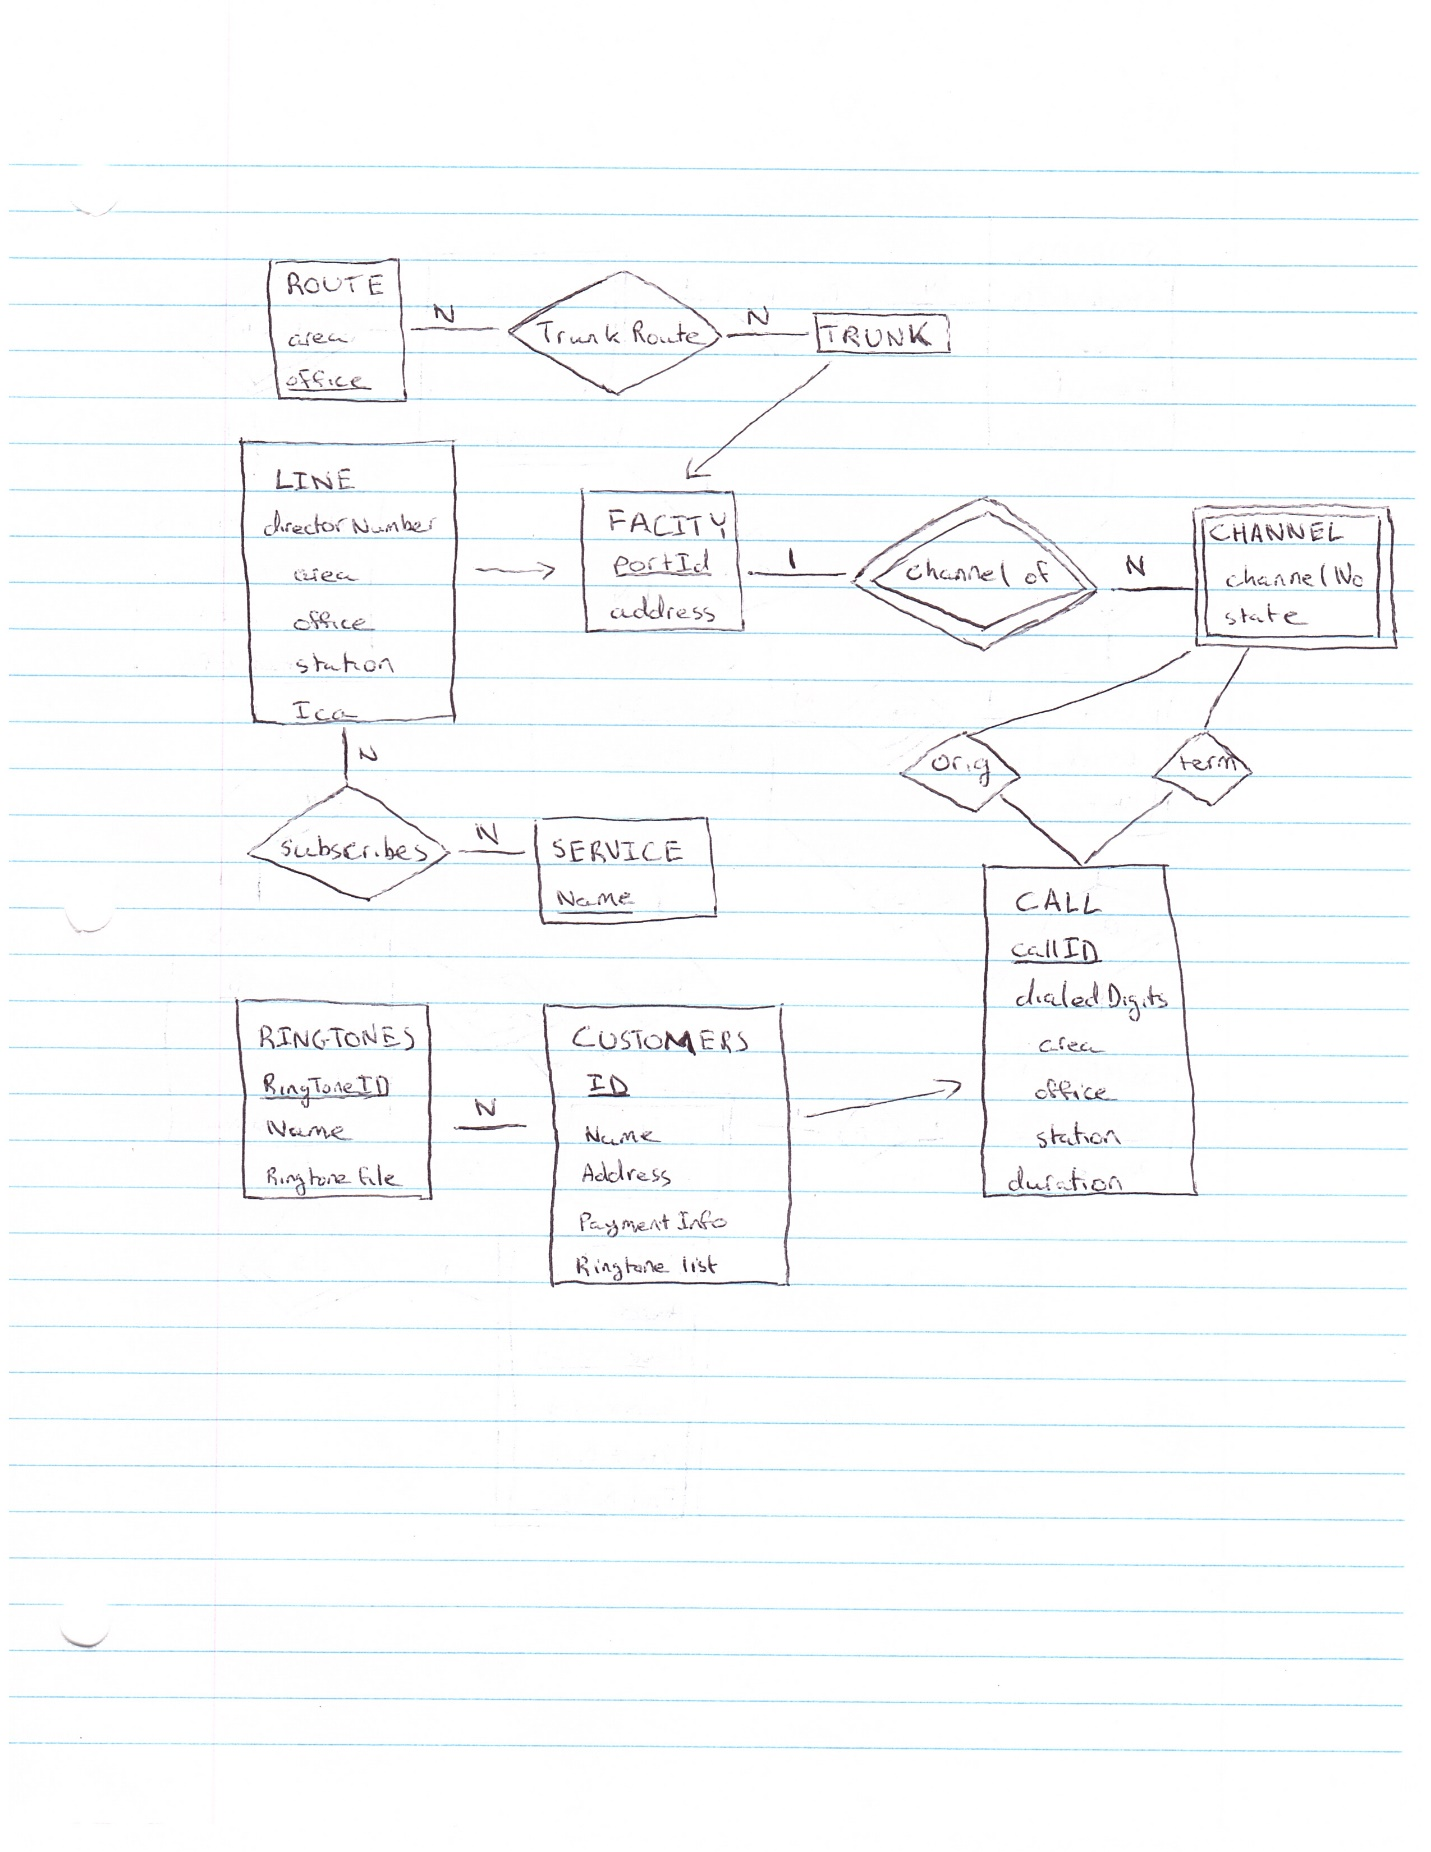 ROUTE
area
office
N
Trunk Route
N
TRUNK
LINE
directorNumber
area
office
station
Ica
FACITY
portId
address
1
channel of
N
CHANNEL
channelNo
state
N
subscribes
N
SERVICE
Name
orig
term
CALL
callID
dialedDigits
area
office
station
duration
RINGTONES
RingToneID
Name
Ringtone file
N
CUSTOMERS
ID
Name
Address
Payment Info
Ringtone list